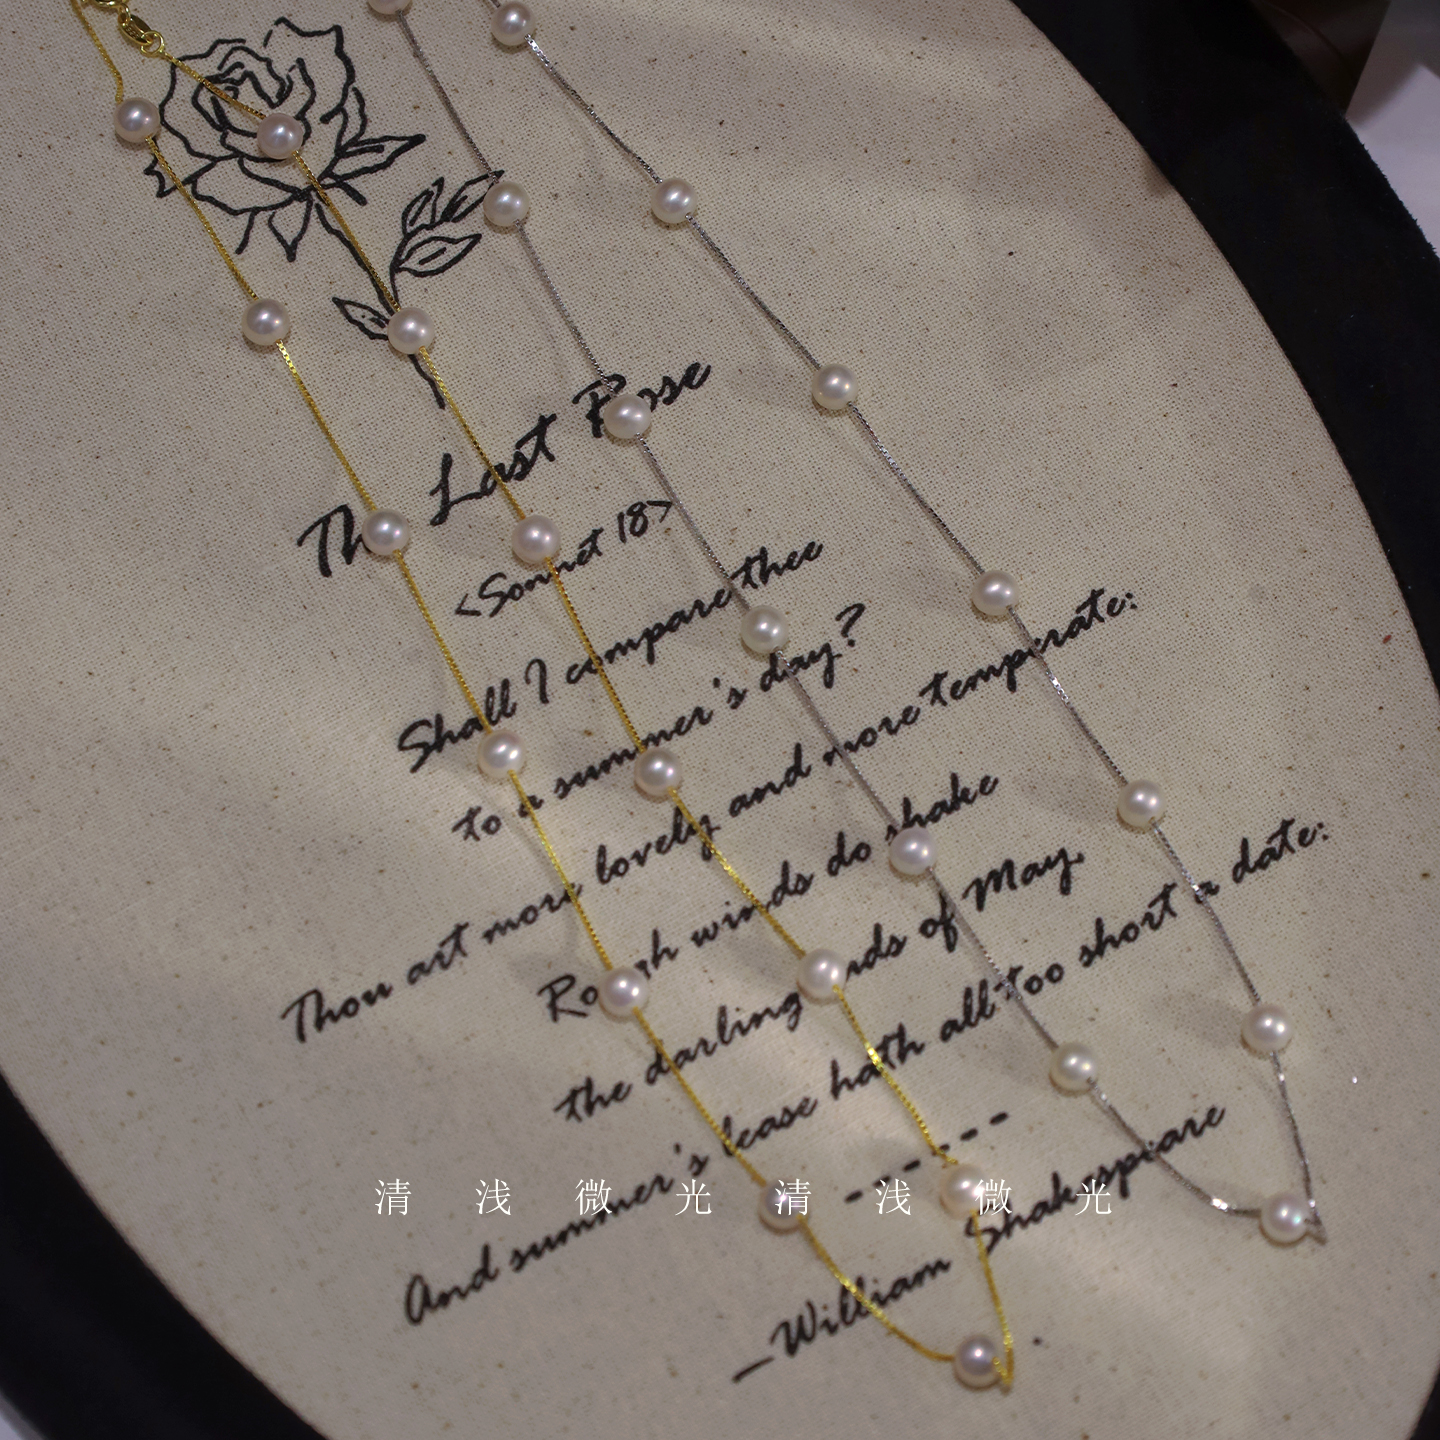 The Last Rose
<Sonnet 18>
Shall I compare thee
to a summer's day?
Thou art more lovely and more temperate:
Rough winds do shake
the darling buds of May,
And summer's lease hath all too short a date:
------
—William Shakespeare
清浅微光清浅微光